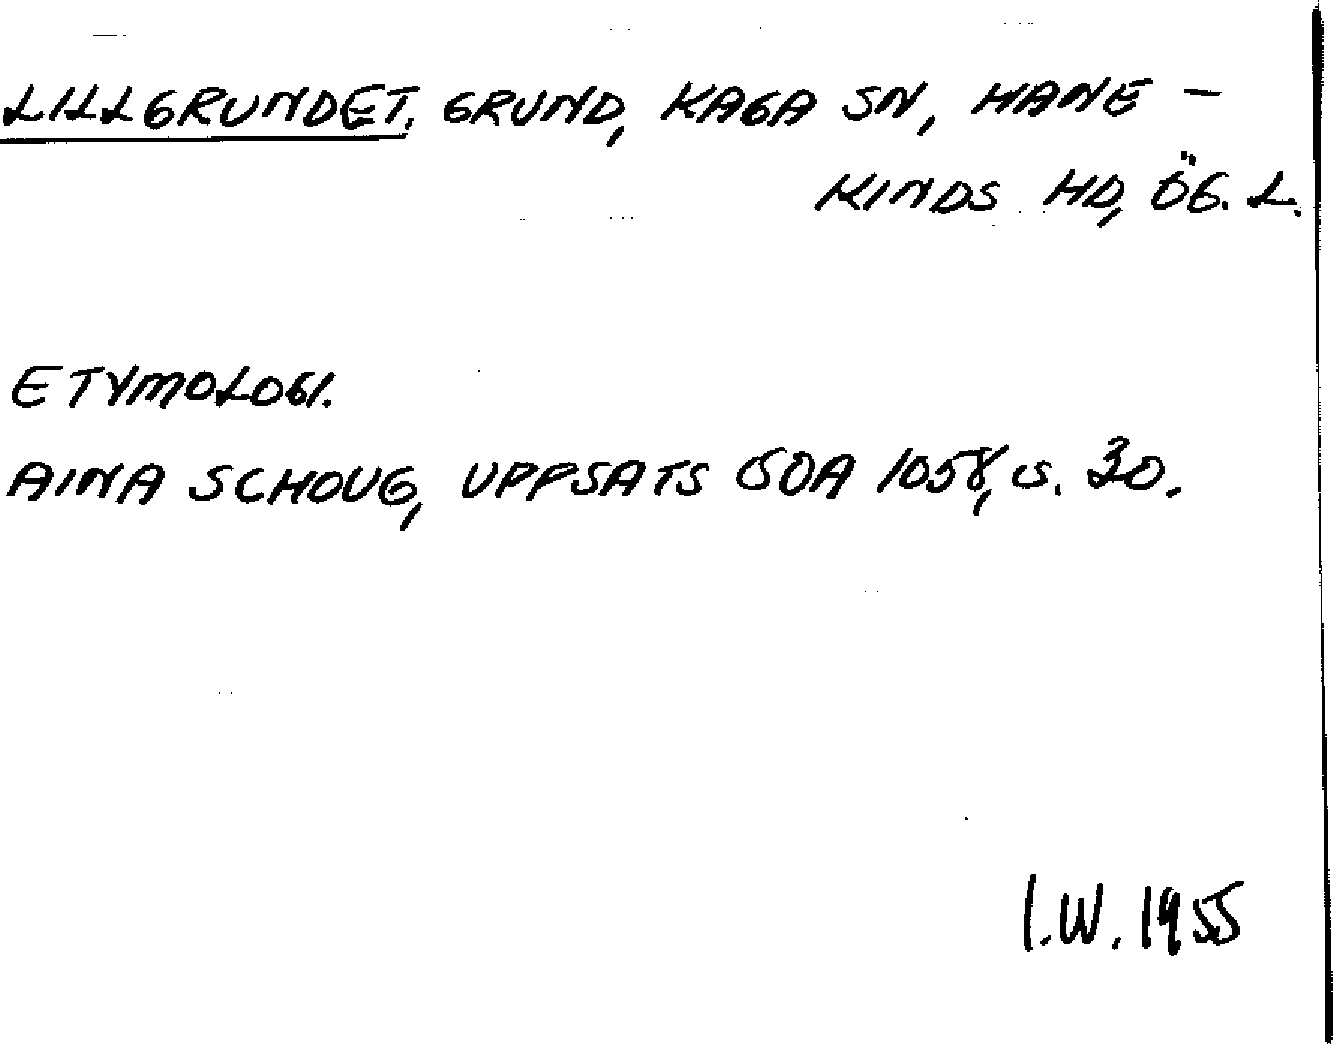 LILLGRUNDET. GRUND, KAGA SN, HANE-
KINDS HD, ÖG. L.
ETYMOLOGI.
AINA SCHOUG, UPPSATS SOA 1058, S. 30.
I.W. 1955